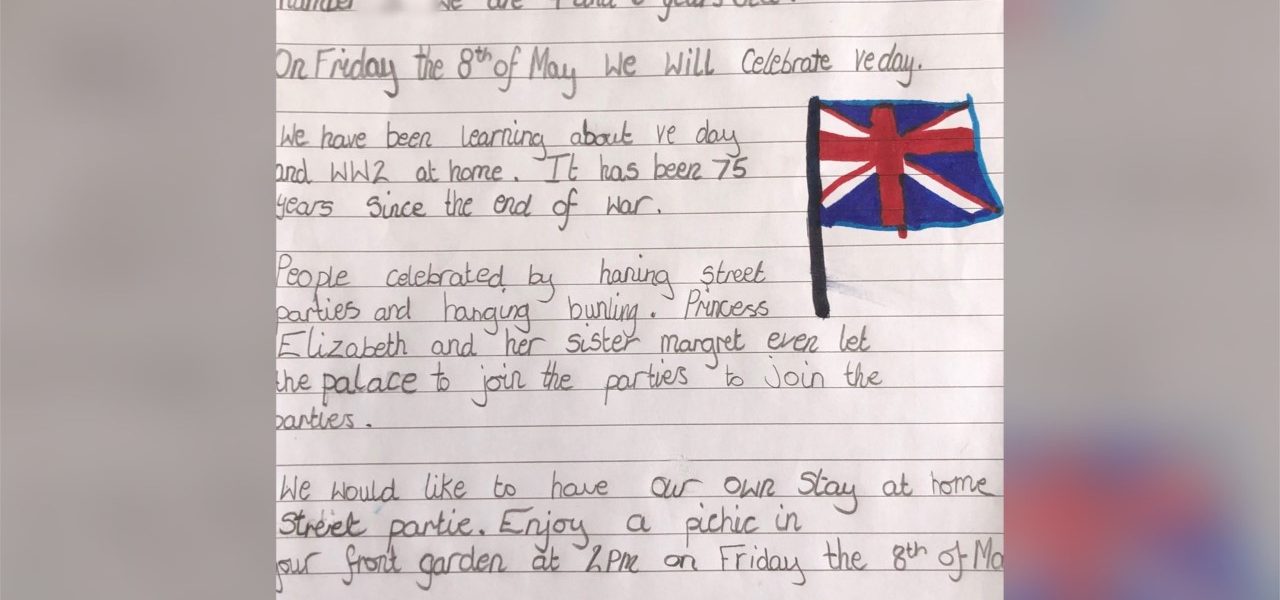 number We are 4 and 6 years old.
On Friday the 8th of May We Will Celebrate ve day.
We have been learning about ve day
and WW2 at home. It has been 75
years since the end of war.
People celebrated by haning street
parties and hanging bunling. Princess
Elizabeth and her sister margret even let
the palace to join the parties to join the
parties.
We would like to have our own Stay at home
Streiet partie. Enjoy a pichic in
our front garden at 2Pm on Friday the 8th of Ma